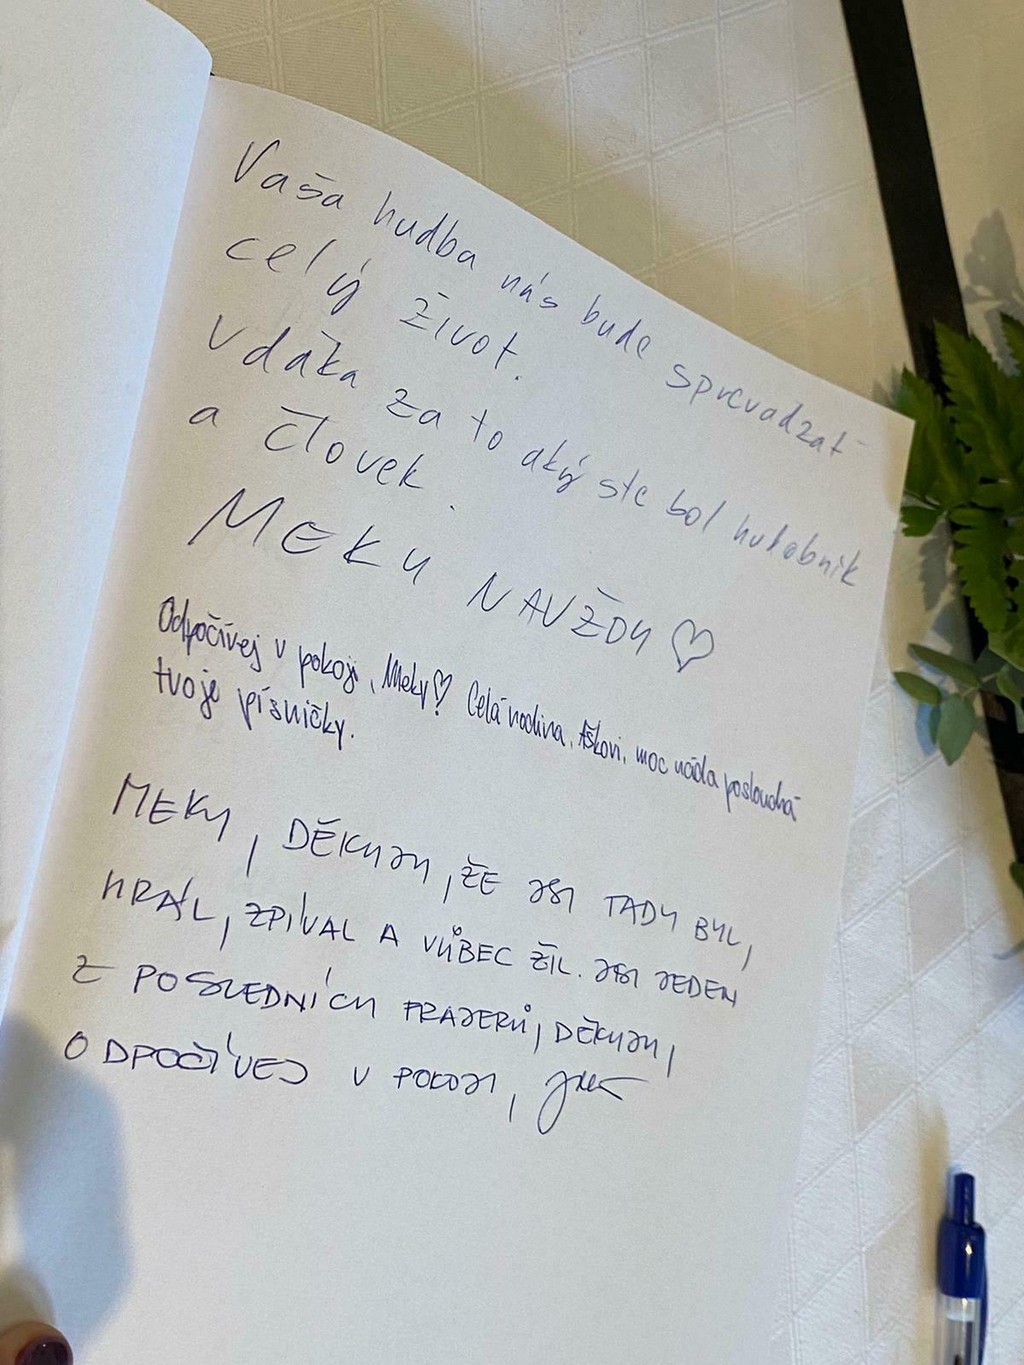 Vaša hudba nás bude sprevádzať
celý život.
Vďaka za to aký ste bol hudobník
a človek.
MEKY NAVŽDY ♡
Odpočívej v pokoji, Meky♡ Celá rodina, moc ráda poslouchá
tvoje písničky.
MEKY, DĚKUJU, ŽE JSI TADY BYL,
HRÁL, ZPÍVAL A VŮBEC ŽIL. JSI JEDEN
Z POSLEDNÍCH FRAJERŮ, DĚKUJU,
ODPOČÍVEJ V POKOJI,